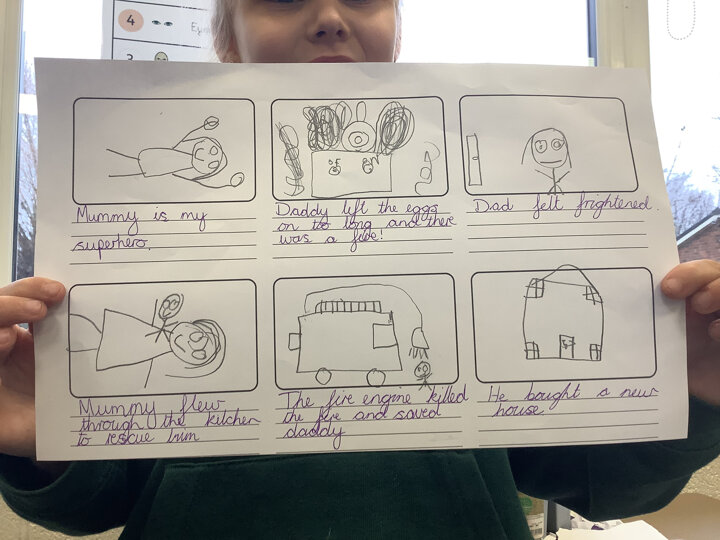 4
Mummy is my
superhero.
Daddy left the eggs
on too long and there
was a fire!
Dad felt frightened.
Mummy flew
through the kitchen
to rescue him
The fire engine killed
the fire and saved
daddy
He bought a new
house